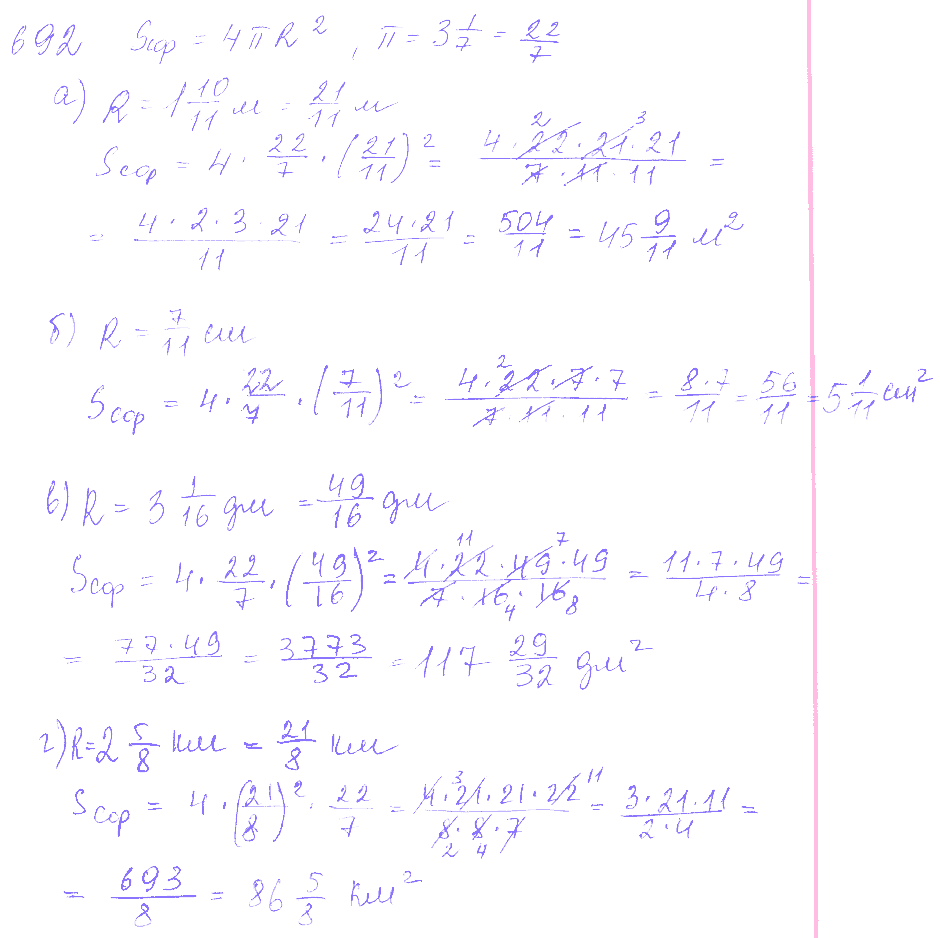 692 Sсф = 4πR², π = 3 1/7 = 22/7
а) R = 1 10/11 м = 21/11 м
Sсф = 4 · 22/7 · (21/11)² = 4 · 22 · 21 · 21 / 7 · 11 · 11 = 2 3
= 4 · 2 · 3 · 21 / 11 = 24 · 21 / 11 = 504/11 = 45 9/11 м²
б) R = 7/11 см
Sсф = 4 · 22/7 · (7/11)² = 4 · 22 · 7 · 7 / 7 · 11 · 11 = 8 · 7 / 11 = 56/11 = 5 1/11 см² 2
в) R = 3 1/16 дм = 49/16 дм
Sсф = 4 · 22/7 · (49/16)² = 4 · 22 · 49 · 49 / 7 · 16 · 16 = 11 · 7 · 49 / 4 · 8 = 11 7 4 8
= 77 · 49 / 32 = 3773/32 = 117 29/32 дм²
г) R = 2 5/8 км = 21/8 км
Sсф = 4 · (21/8)² · 22/7 = 4 · 21 · 21 · 22 / 8 · 8 · 7 = 3 · 21 · 11 / 2 · 4 = 3 11 2 4
= 693/8 = 86 5/8 км²